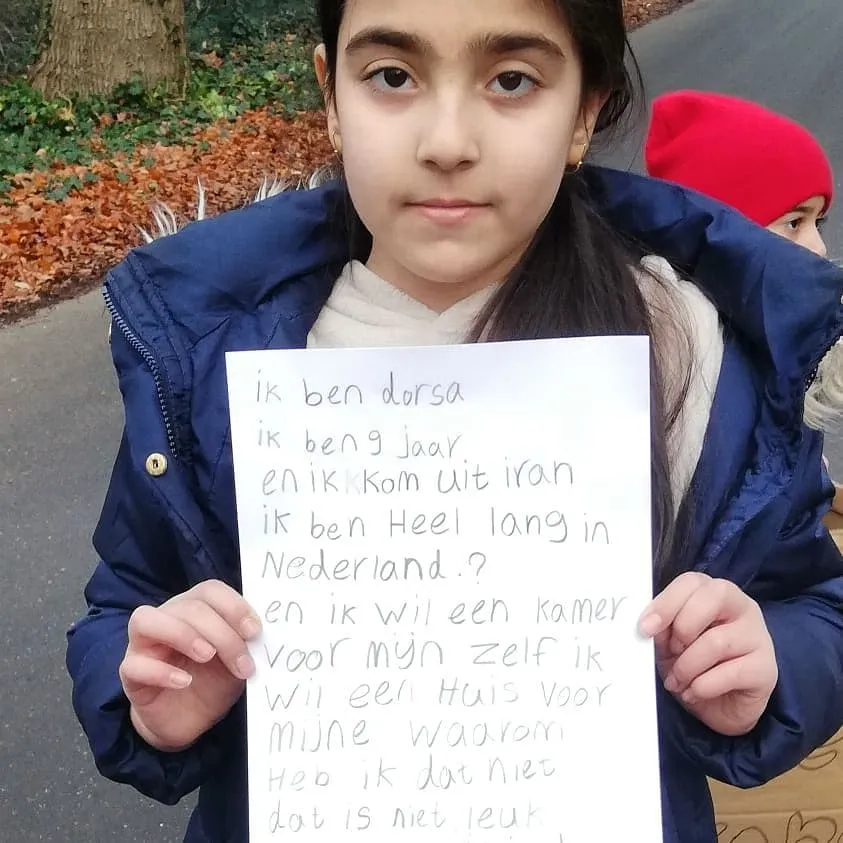 ik ben dorsa
ik ben 9 jaar
en ik kom uit iran
ik ben Heel lang in
Nederland.?
en ik wil een kamer
voor mijn zelf ik
wil een Huis voor
mijne waarom
Heb ik dat niet
dat is niet leuk